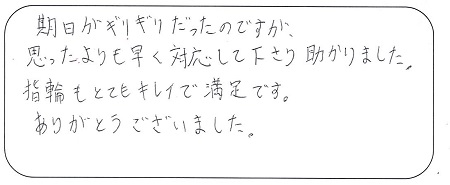 期日がギリギリだったのですが、
思ったよりも早く対応して下さり助かりました。
指輪もとてもキレイで満足です。
ありがとうございました。